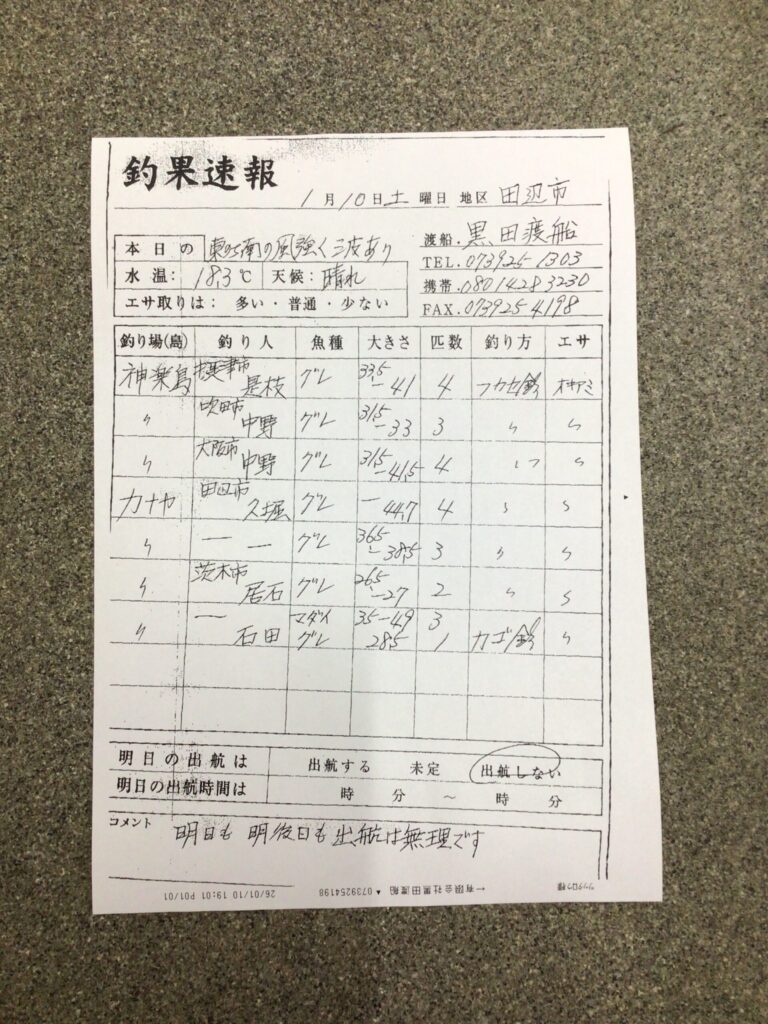 釣果速報
1月10日土曜日 地区 田辺市
渡船.黒田渡船
本日の 東のち南の風強く波あり
TEL.073925 1303
水温: 18.3℃ 天候: 晴れ
携帯.08014283230
エサ取りは: 多い・普通・少ない
FAX.073925 4198
釣り場(島) 釣り人 魚種 大きさ 匹数 釣り方 エサ
神楽島 是枝 グレ 33.5-41 4 フカセ釣 オキアミ
〃 吹田市 中野 グレ 31.5-33 3 〃 〃
〃 大阪市 中野 グレ 31.5-41.5 4 〃 〃
カナヤ 田辺市 久堀 グレ - 44.7 4 〃 〃
〃 — — グレ 36.5-38.5 3 〃 〃
〃 茨木市 居石 グレ 26.5-27 2 〃 〃
〃 — 石田 マダイ 35-49 3
グレ 28.5 1 カゴ釣 〃
明日の出航は 出航する 未定 出航しない
明日の出航時間は 時 分 ～ 時 分
コメント 明日も 明後日も 出航は無理です
26/01/10 19:01 P01/01 ▲ 0739254198 ←有限会社黒田渡船